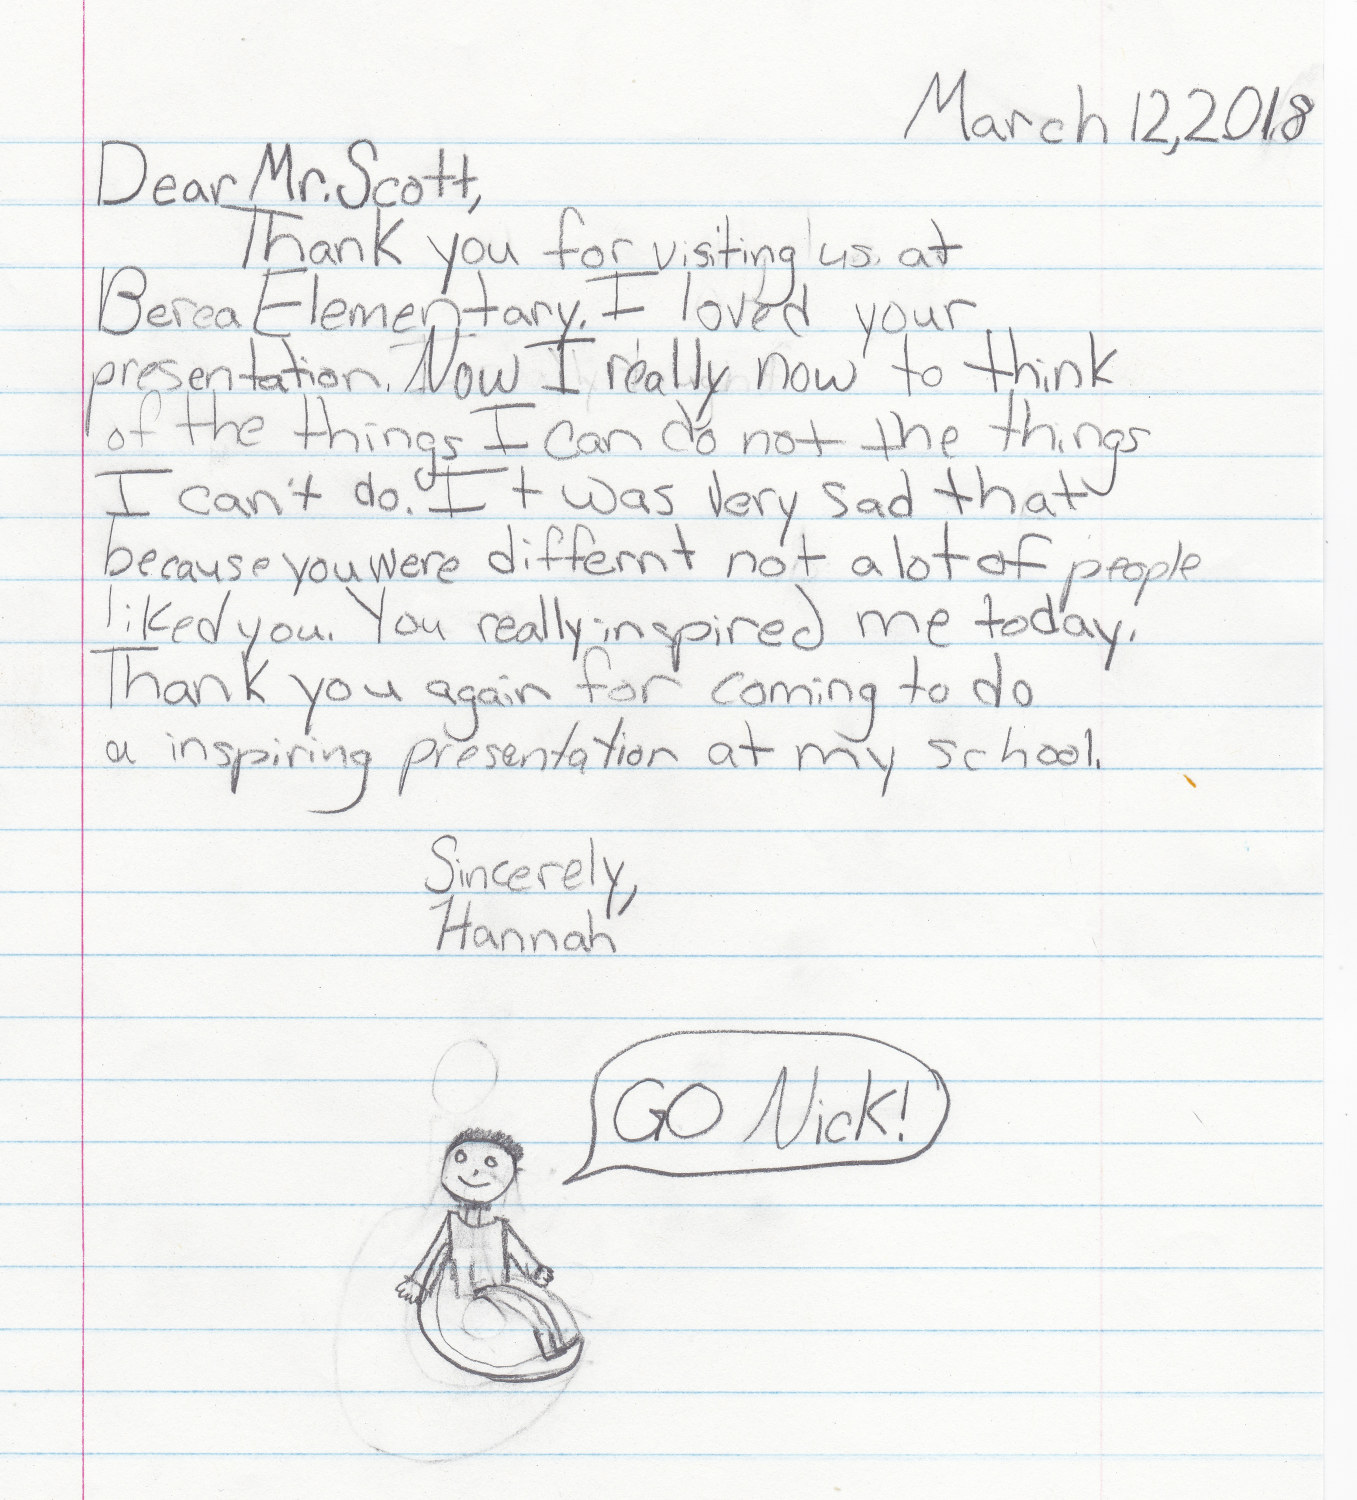 March 12, 2018
Dear Mr. Scott,
Thank you for visiting us at
Berea Elementary. I loved your
presentation. Now I really now to think
of the things I can do not the things
I can't do. It was very sad that
because you were differnt not a lot of people
liked you. You really inspired me today.
Thank you again for coming to do
a inspiring presentation at my school.
Sincerely,
Hannah
GO Nick!